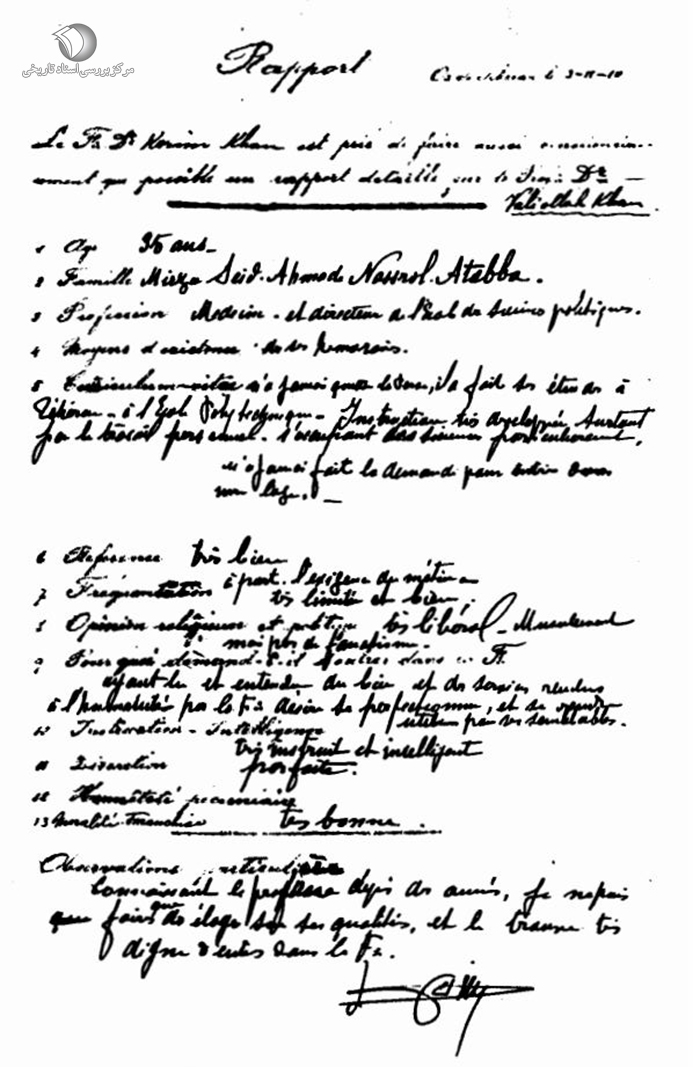 مرکز بررسی اسناد تاریخی
Rapport
le 3-11-10
Le F∴ Dr Karim Khan est prié de faire aussi
que possible un rapport détaillé, sur le Dr
Valiollah Khan
1 Age 35 ans
2 Famille Mirza Seid Ahmed Nassrol Atebba.
3 Profession Medecin et directeur de l'Ecole des Sciences politiques.
4 Moyens d'existence de ses honoraires.
5 Curriculum-vitae n'a jamais quitté la Perse, il a fait ses études à
Téhéran à l'Ecole Polytechnique. Instruction très developpée, surtout
par le travail personnel. s'occupant des sciences particulièrement,
n'a jamais fait la demande pour entrer dans
une Loge. —
6 Reference très bien
7 Fréquentation à part l'exigence du métier
très limitée et bien.
8 Opinion religieuse et politique très libéral - Musulman
mais pas de fanatisme.
9 Pourquoi demande-t-il d'entrer dans la F∴
ayant lu et entendu du bien et des services rendus
à l'humanité par la F∴ désire se perfectionner, et se rendre
utile par ses semblables.
10 Instruction - Intelligence
très instruit et intelligent
11 Discretion parfaite.
12 Honnêteté pecuniaire
13 Moralité tres bonne.
Observations particulières
Connaissant le depuis des années, je ne puis
que faire que des éloges sur ses qualités, et le trouve très
digne d'entrer dans la F∴.